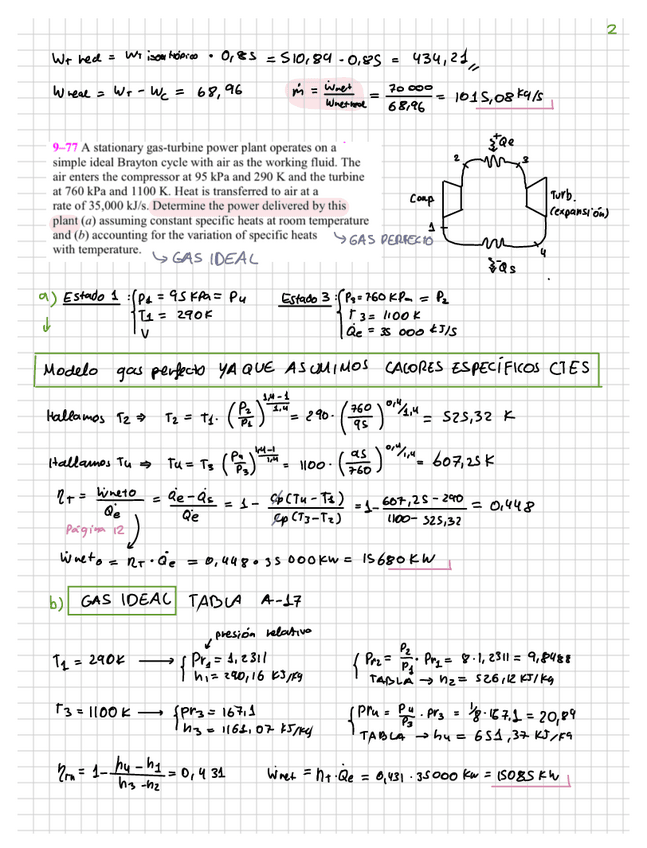 2
WT real = WT isoentrópico · 0,85 = 510,84 · 0,85 = 434,21
W real = WT - WC = 68,96
ṁ = Ẇnet / Wnet real = 70 000 / 68,96 = 1015,08 kg/s
9–77 A stationary gas-turbine power plant operates on a
simple ideal Brayton cycle with air as the working fluid. The
air enters the compressor at 95 kPa and 290 K and the turbine
at 760 kPa and 1100 K. Heat is transferred to air at a
rate of 35,000 kJ/s. Determine the power delivered by this
plant (a) assuming constant specific heats at room temperature
and (b) accounting for the variation of specific heats
with temperature.
→ GAS PERFECTO
→ GAS IDEAL
+Qe
2
3
Comp
Turb.
(expansión)
1
4
-Qs
a) Estado 1 : P1 = 95 kPa = P4
T1 = 290K
V
Estado 3 : P3 = 760 KPa = P2
T3 = 1100K
Q̇e = 35 000 kJ/s
Modelo gas perfecto YA QUE ASUMIMOS CALORES ESPECÍFICOS CTES
Hallamos T2 ⇒ T2 = T1 · (P2/P1)^(1,4-1/1,4) = 290 · (760/95)^(0,4/1,4) = 525,32 K
Hallamos T4 ⇒ T4 = T3 (P4/P3)^(1,4-1/1,4) = 1100 · (95/760)^(0,4/1,4) = 607,25 K
ηT = Ẇneto / Q̇e = Q̇e - Q̇s / Q̇e = 1 - Cp(T4 - T1) / Cp(T3 - T2) = 1 - 607,25 - 290 / 1100 - 525,32 = 0,448
Página 12
Ẇneto = ηT · Q̇e = 0,448 · 35 000 KW = 15680 KW
b) GAS IDEAL TABLA A-17
presión relativa
T1 = 290K → Pr1 = 1,2311
h1 = 290,16 KJ/Kg
Pr2 = P2/P1 · Pr1 = 8 · 1,2311 = 9,8488
TABLA → h2 = 526,12 KJ/Kg
T3 = 1100 K → Pr3 = 167,1
h3 = 1161,07 KJ/Kg
Pr4 = P4/P3 · Pr3 = 1/8 · 167,1 = 20,89
TABLA → h4 = 651,37 KJ/Kg
ηm = 1 - h4 - h1 / h3 - h2 = 0,431
Ẇnet = ηT · Q̇e = 0,431 · 35000 Kw = 15085 KW